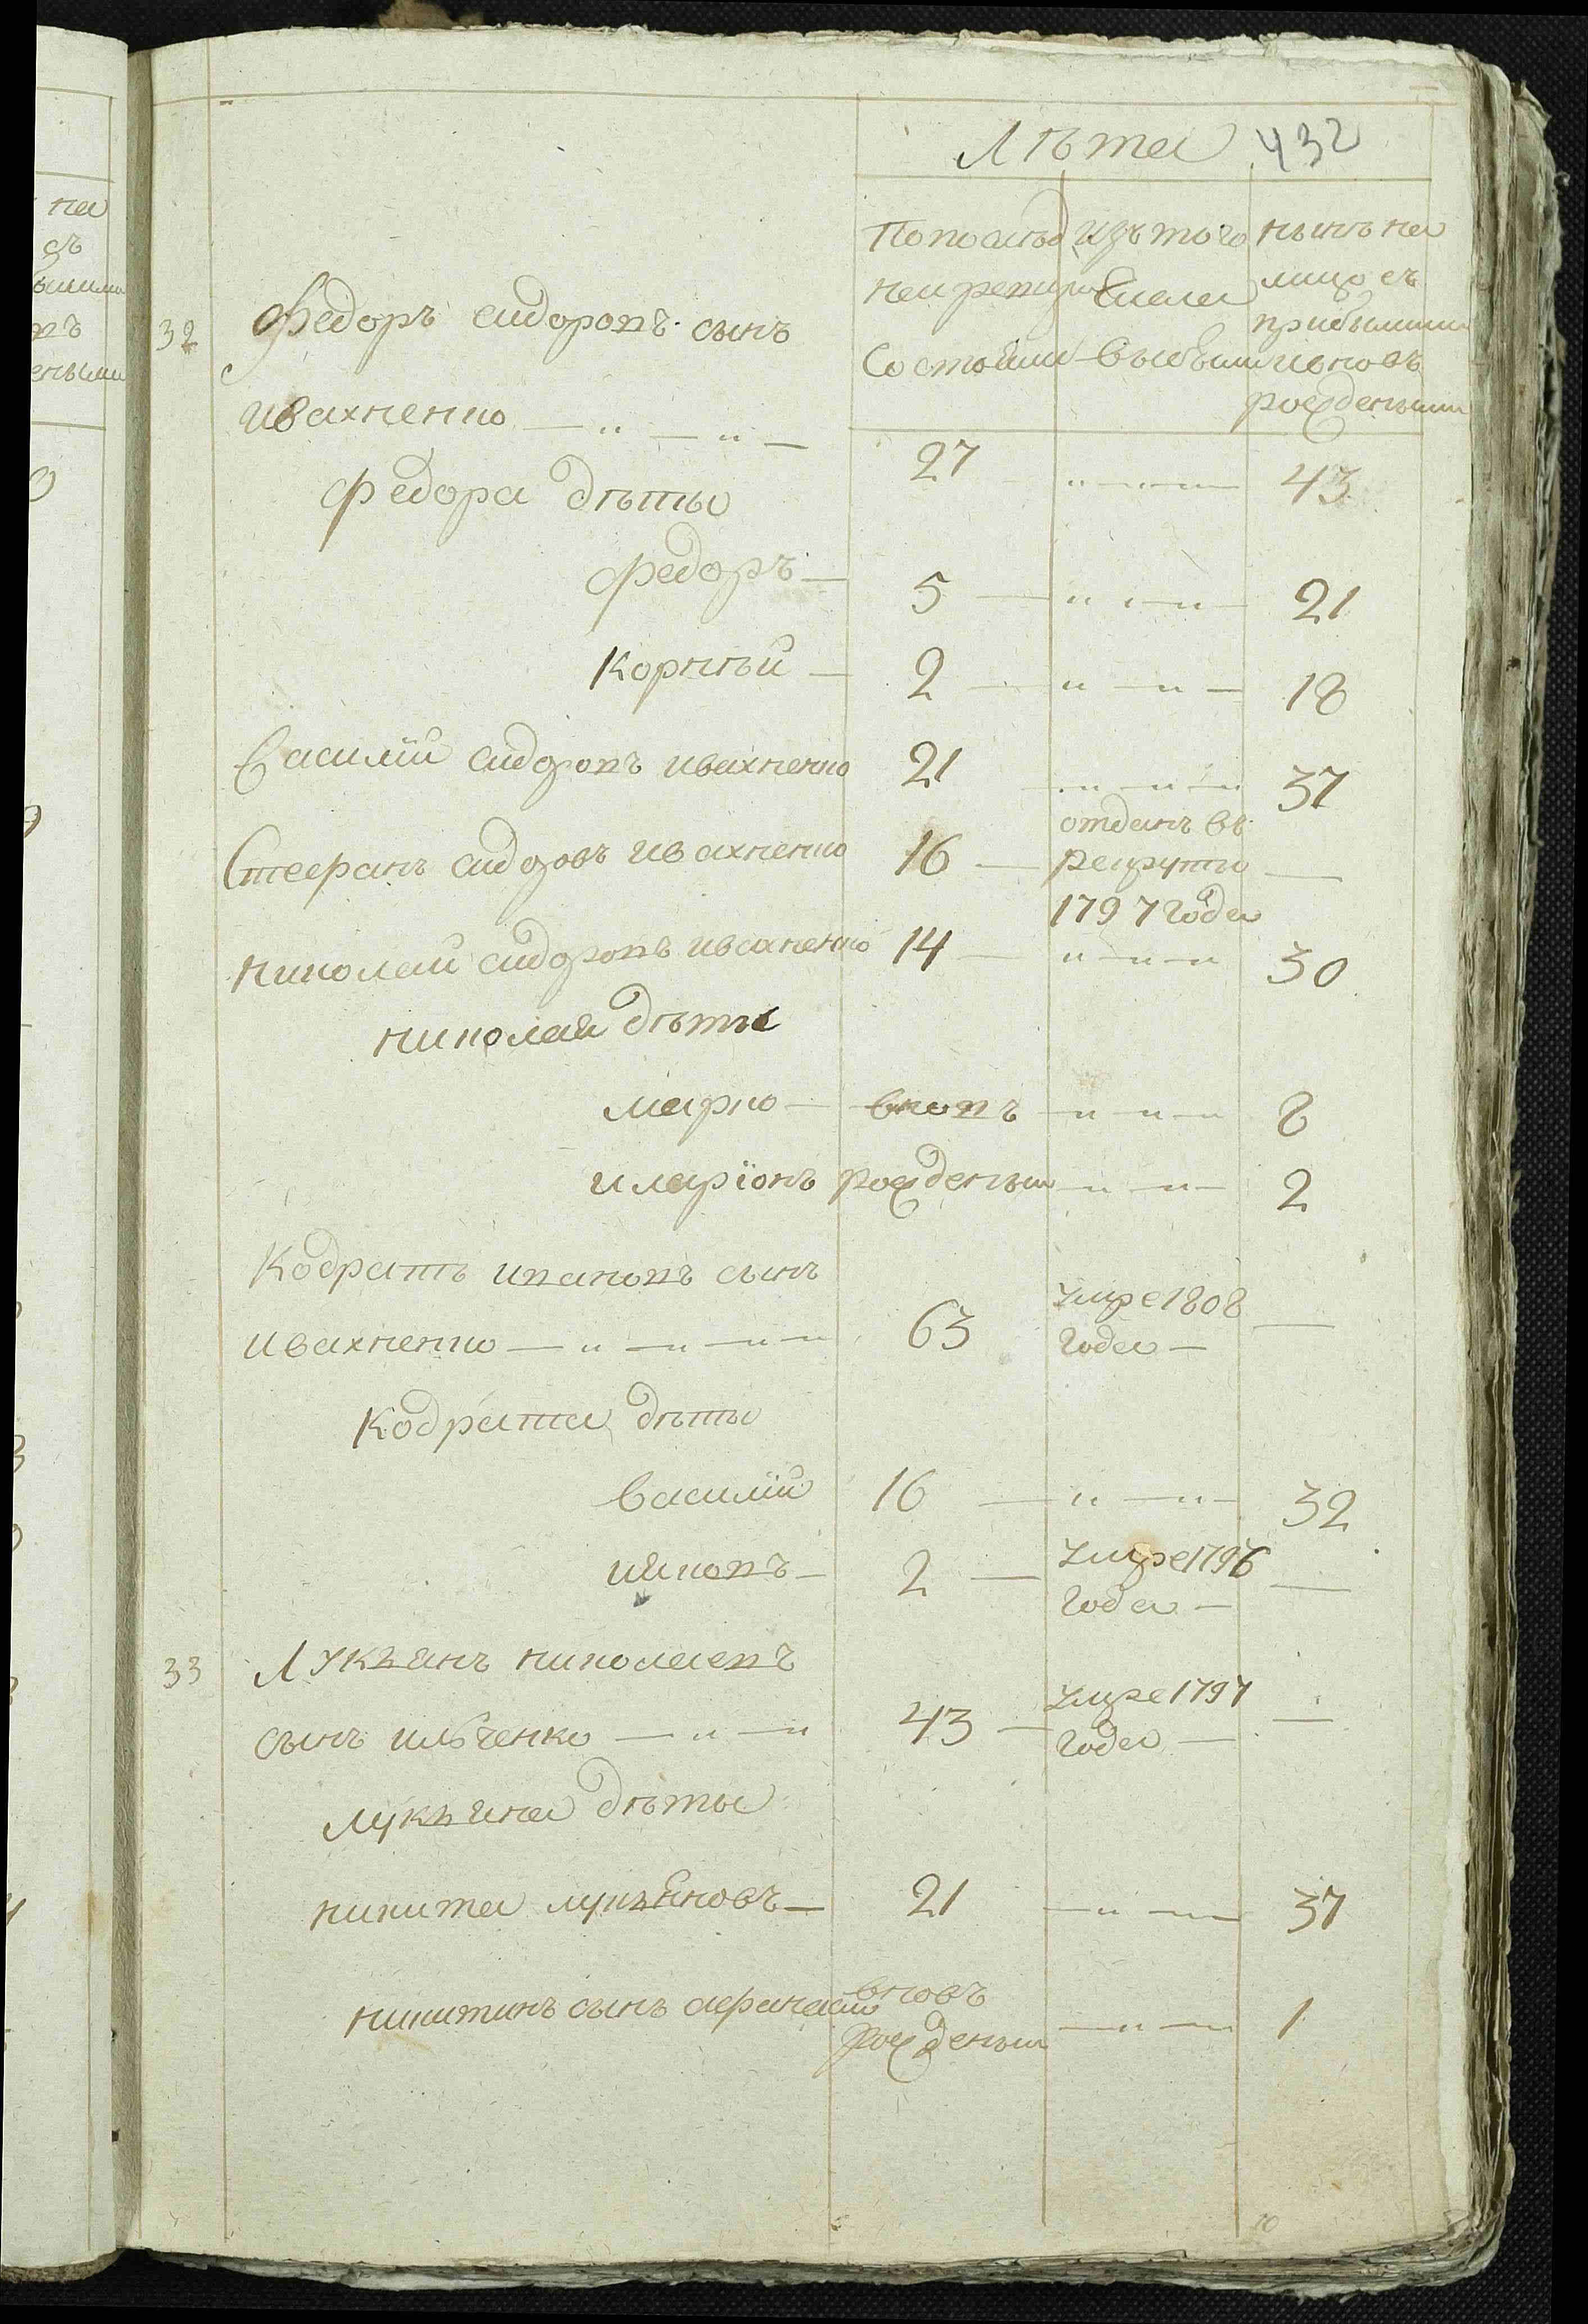 Лѣта 432
По послѣд изъ того нынѣ на
ней ревизіи числа лицо съ
прибылими
Состояли выбыли и новъ
рожденными
32 Федоръ сидоровъ сынъ
ивахненко — " — " — 27 " — — 43
Федора дѣты
федоръ — 5 — " — " — 21
Корнѣй — 2 — " — " — 18
Василій сидоровъ ивахненко 21 " — " — " 37
Стефанъ сидоровъ ивахненко 16 — отданъ въ
рекруты —
1797 года
николай сидоровъ ивахненко 14 — " — " — " 30
николая дѣты
марко — вновъ — " — " — " 8
иларіонъ рожденый — " — " — 2
Кодратъ ивановъ сынъ
ивахненко — " — " — " — " 63 умре 1808
года — —
Кодрата дѣты
василій 16 — " — " — 32
яковъ — 2 — умре 1796
года — —
33 Лукьянъ николаевъ
сынъ ильченко — " — " 43 — умре 1797
года — —
лукьяна дѣты
никита лукьяновъ — 21 — " — — 37
никитинъ сынъ афанасий вновъ
рожденый — " — 1